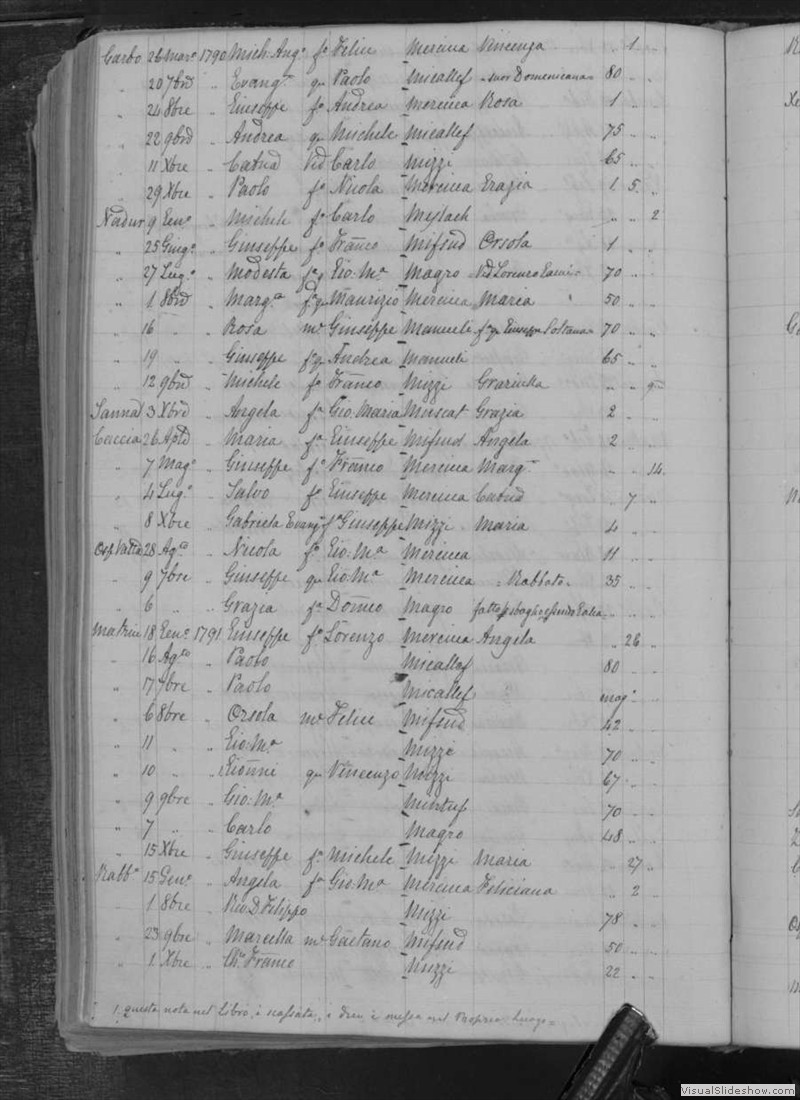 Garbo 26 Mar° 1790 Mich: Ang° f° Felice Mercieca Vincenza „ 1 „
„ 20 7bre „ Evang^ta q^m Paolo Micallef Domenicana 80 „ „
„ 24 8bre „ Giuseppe f° Andrea Mercieca Rosa 1 „ „
„ 22 9bre „ Andrea q^m Michele Micallef 75 „ „
„ 11 Xbre „ Catud Vid Carlo Mizzi 65 „ „
„ 29 Xbre „ Paolo f° Nicola Mercieca Grazia 1 5 „
Nadur 9 Gen° „ Michele f° Carlo Meylach „ „ 2
„ 25 Giug° „ Giuseppe f° Franco Mifsud Orsola 1 „ „
„ 27 Lug° „ Modesta Gio: M^a Magro Vid Lorenzo 70 „ „
„ 1 8bre „ Marg^ta Maurizio Mercieca Maria 50 „ „
„ 16 „ „ Rosa m^e Giuseppe Manueli Giuseppe 70 „ „
„ 19 „ „ Giuseppe Andrea Manueli 65 „ „
„ 12 9bre „ Michele f° Franco Mizzi Graziella „ „
Sannat 3 Xbre „ Angela f^a Gio: Maria Muscat Grazia 2 „ „
Caccia 26 Aple „ Maria f^a Giuseppe Mifsud Angela 2 „ „
„ 7 Mag° „ Giuseppe f° Franco Mercieca Marg^ta „ „ 14
„ 4 Lug° „ Salvo f° Giuseppe Mercieca Catud „ 7 „
„ 8 Xbre „ Gabriela Evang^ta f^a Giuseppe Mizzi Maria 4 „ „
Osp Vallta 28 Ag° „ Nicola f° Gio: M^a Mercieca 11 „ „
„ 9 7bre „ Giuseppe q^m Gio: M^a Mercieca Rabbato 35 „ „
„ 6 „ „ Grazia f^a Domco Magro
Matrice 18 Gen° 1791 Giuseppe f° Lorenzo Mercieca Angela „ 26 „
„ 16 Ag° „ Paolo Micallef 80 „ „
„ 17 7bre „ Paolo Micallef mag°
„ 6 8bre „ Orsola m^e Felice Mifsud 42 „ „
„ 11 „ „ Gio: M^a Mizzi 70 „ „
„ 10 „ „ Gionni q^m Vincenzo Mizzi 67 „ „
„ 9 9bre „ Gio: M^a Mintuf 70 „ „
„ 7 „ „ Carlo Magro 48 „ „
„ 15 Xbre „ Giuseppe f° Michele Mizzi Maria „ 27 „
Rabb° 15 Gen° „ Angela f^a Gio: M^a Mercieca Feliciana „ 2 „
„ 1 8bre „ Rev D Filippo Mizzi 78 „ „
„ 23 9bre „ Marcella m^e Gaetano Mifsud 50 „ „
„ 1 Xbre „ Ch° Franco Mizzi 22 „ „
1. questa nota nel Libro, è cassata, è messa nel Proprio Luogo =
VisualSlideshow.com